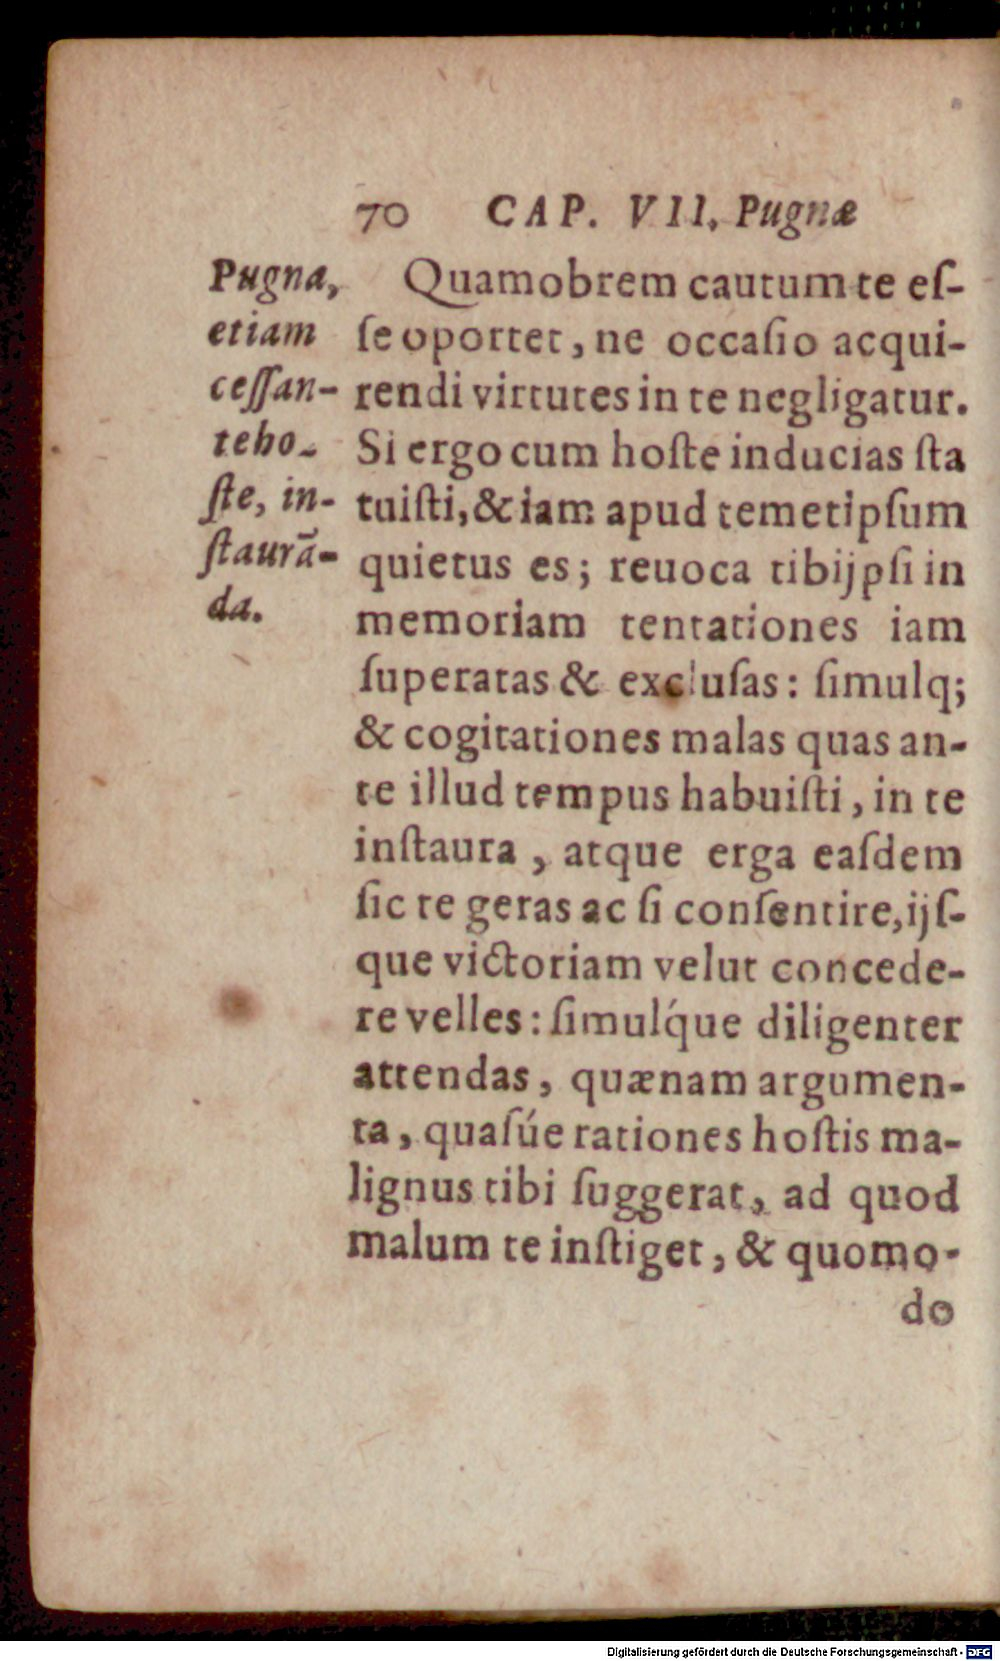 70 CAP. VII. Pugnæ
Pugna,
etiam
ceſſan-
teho-
ſte, in-
ſtaurã-
da.
Quamobrem cautum te eſ-
ſe oportet, ne occaſio acqui-
rendi virtutes in te negligatur.
Si ergo cum hoſte inducias ſta
tuiſti, & iam apud temetipſum
quietus es; reuoca tibijpſi in
memoriam tentationes iam
ſuperatas & excluſas: ſimulq;
& cogitationes malas quas an-
te illud tempus habuiſti, in te
inſtaura, atque erga eaſdem
ſic te geras ac ſi conſentire, ijſ-
que victoriam velut concede-
re velles: ſimulq́ue diligenter
attendas, quænam argumen-
ta, quaſúe rationes hoſtis ma-
lignus tibi ſuggerat, ad quod
malum te inſtiget, & quomo-
do
Digitalisierung gefördert durch die Deutsche Forschungsgemeinschaft - DFG